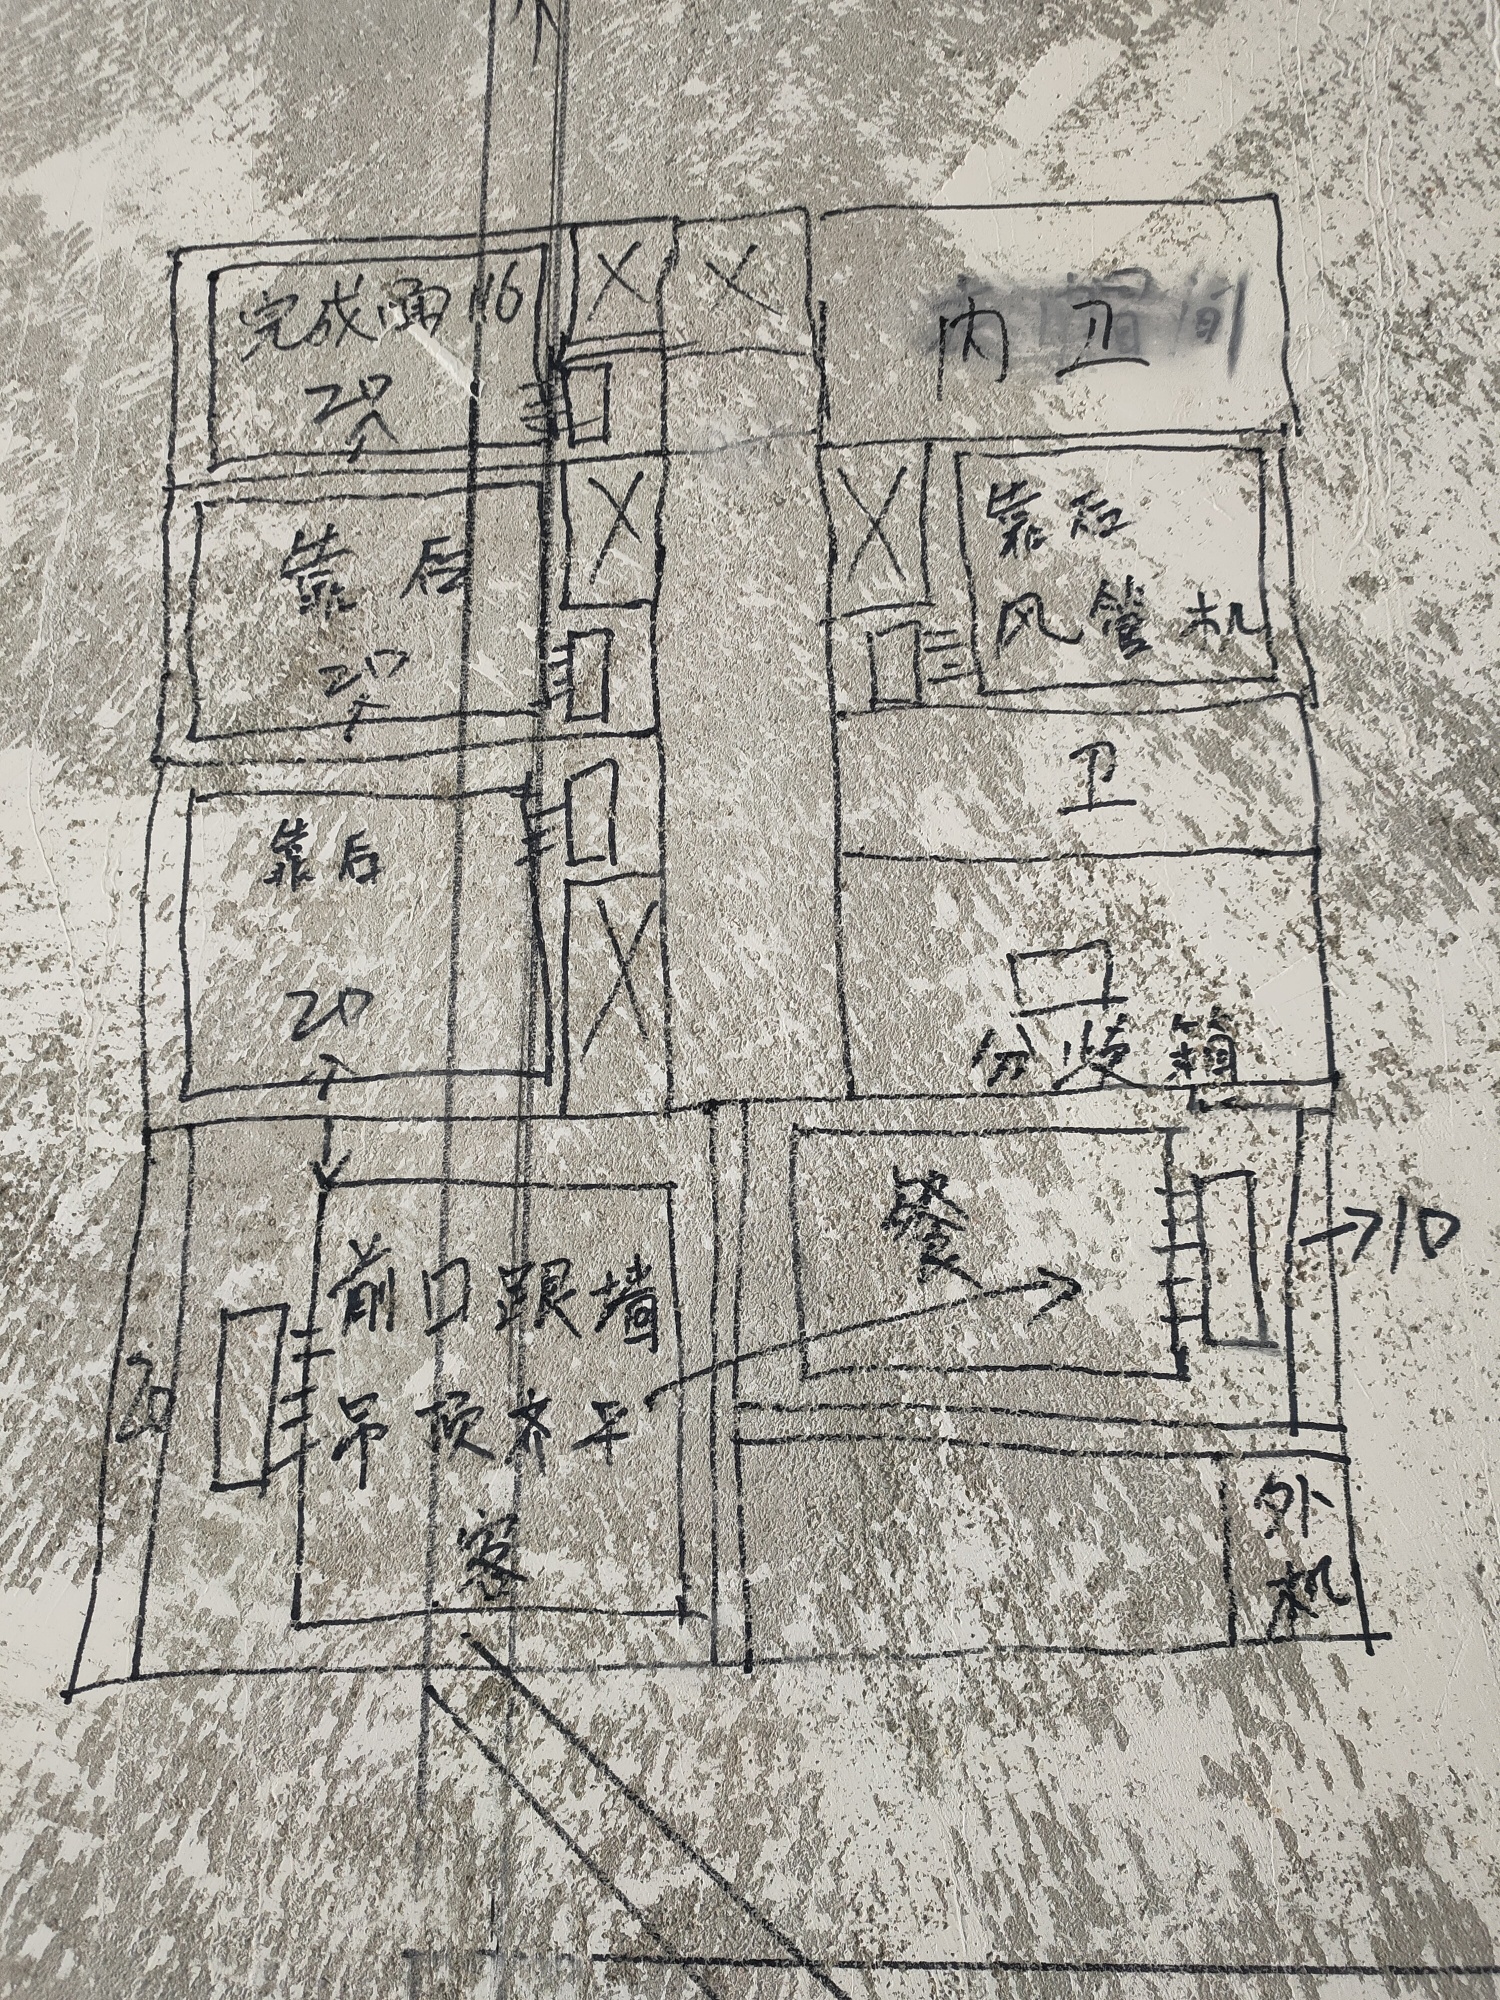 完成面 16
20
内卫
靠后
20
靠后
风管机
卫
靠后
20
分歧箱
餐
→10
前口跟墙
吊顶齐平
20
客
外
机